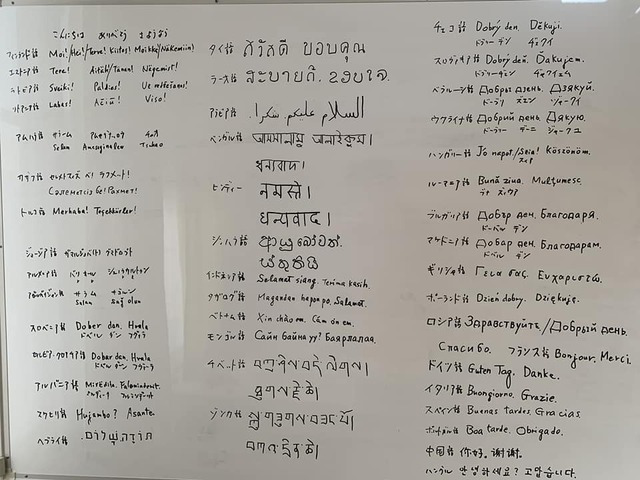 こんにちは ありがとう さようなら
フィンランド語 Moi!/Hei!/Terve! Kiitos! Moikka/Näkemiin!
エストニア語 Tere! Aitäh/Tänan! Nägemist!
ラトビア語 Sveiki! Paldies! Uz redzēšanos!
リトアニア語 Labas! Ačiū! Viso!
アムハラ語 サラーム アムセグナッロウ チャオ
Selam Ameseginalew Tschao
カザフ語
Сәлеметсіз бе! Рахмет!
トルコ語 Merhaba! Teşekkürler!
ジョージア語
アルメニア語
アゼルバイジャン語 サラム サオルン
Salam Sağ olun
スロベニア語 Dober dan. Hvala
ドベル ダン フヴァラ
セルビア・クロアチア語 Dobar dan. Hvala
ドバル ダン フヴァーラ
アルバニア語 Mirëdita. Faleminderit.
ミルディータ ファレミンデリト
スワヒリ語 Hujambo? Asante.
ヘブライ語
タイ語 สวัสดี ขอบคุณ
ラオス語 ສະບາຍດີ. ຂອບໃຈ.
アラビア語 السلام عليكم. شكرا.
ベンガル語
ধন্যবাদ।
ヒンディー नमस्ते।
धन्यवाद।
シンハラ ආයුබෝවන්.
ස්තුතියි
インドネシア Selamat siang. Terima kasih.
タガログ Magandan hapon po. Salamat.
ベトナム Xin chào em. Cám ơn em.
モンゴル Сайн байна уу? Баярлалаа.
チベット བཀྲ་ཤིས་བདེ་ལེགས།
ཐུགས་རྗེ་ཆེ།
ゾンカ語 སྐུ་གཟུགས་བཟང་པོ།
བཀའ་དྲིན་ཆེ།
チェコ語 Dobrý den. Děkuji.
ドブリー デン ヂェクイ
スロヴァキア語 Dobrý deň. Ďakujem.
ドブリーデェン ヂャクイェム
ベラルーシ語 Добры дзень. Дзякуй.
ドーブリ ヅェン ジャークイ
ウクライナ語 Добрий день. Дякую.
ドーブリ デーニ ジャークユ
ハンガリー語 Jó napot!/Szia! Köszönöm.
ルーマニア語 Bună ziua. Mulţumesc.
ブナ ズィウア
ブルガリア語 Добър ден. Благодаря.
ドーバル デン
マケドニア語 Добар ден. Благодарам.
ドーバル デン
ギリシャ語 Γεια σας. Ευχαριστώ.
ポーランド語 Dzień dobry. Dziękuję.
ロシア語 Здравствуйте/Добрый день.
Спасибо. フランス語 Bonjour. Merci.
ドイツ語 Guten Tag. Danke.
イタリア語 Buongiorno. Grazie.
スペイン語 Buenas tardes. Gracias.
ポルトガル語 Boa tarde. Obrigado.
中国語 你好. 谢谢.
ハングル 안녕하세요? 고맙습니다.